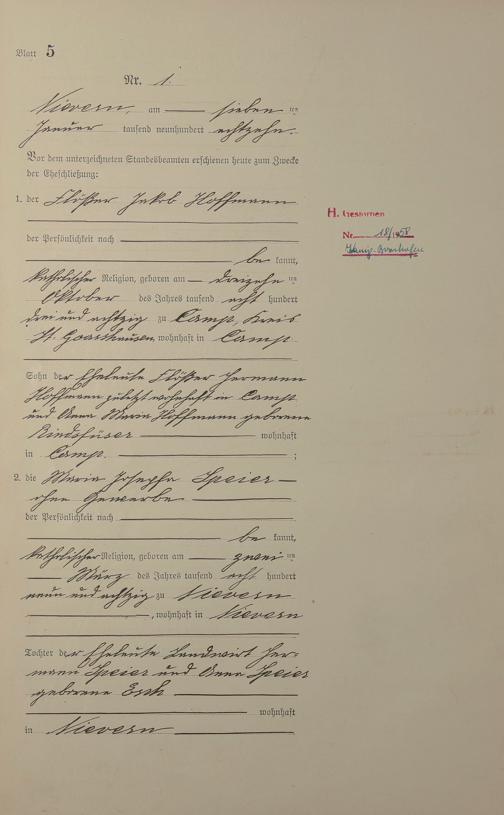 Blatt 5
Nr. 1.
Nievern, am sieben ten
Januar tausend neunhundert achtzehn.
Vor dem unterzeichneten Standesbeamten erschienen heute zum Zwecke
der Eheschließung:
1. der Flößer Jakob Hoffmann
der Persönlichkeit nach
be kannt,
katholischer Religion, geboren am dreizehn ten
Oktober des Jahres tausend acht hundert
drei und achtzig zu Camp, Kreis
St. Goarshausen, wohnhaft in Camp
Sohn der Eheleute Flößer Hermann
Hoffmann zuletzt wohnhaft in Camp
und Anna Maria Hoffmann geborene
wohnhaft
in Camp. ;
2. die Maria Josepha Speier
ohne Gewerbe
der Persönlichkeit nach
be kannt,
katholischer Religion, geboren am zwei ten
März des Jahres tausend acht hundert
neun und achtzig zu Nievern
, wohnhaft in Nievern
Tochter der Eheleute Landwirt Her-
mann Speier und Anna Speier
geborene Esch
wohnhaft
in Nievern
H. Gestorben
Nr. 18/1958